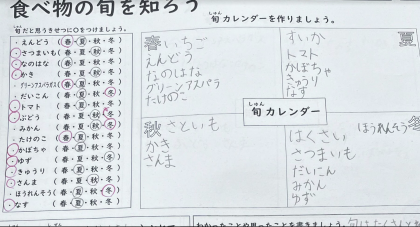 食べ物の旬を知ろう
旬だと思うきせつに○をつけましょう。
・えんどう（春・夏・秋・冬）
・さつまいも（春・夏・秋・冬）
・なのはな（春・夏・秋・冬）
・かき（春・夏・秋・冬）
・グリーンアスパラガス（春・夏・秋・冬）
・だいこん（春・夏・秋・冬）
・トマト（春・夏・秋・冬）
・ぶどう（春・夏・秋・冬）
・みかん（春・夏・秋・冬）
・たけのこ（春・夏・秋・冬）
・かぼちゃ（春・夏・秋・冬）
・ゆず（春・夏・秋・冬）
・きゅうり（春・夏・秋・冬）
・さんま（春・夏・秋・冬）
・ほうれんそう（春・夏・秋・冬）
・なす（春・夏・秋・冬）
しゅん
旬カレンダーを作りましょう。
春 いちご
えんどう
なのはな
グリーンアスパラガス
たけのこ
夏
すいか
トマト
かぼちゃ
きゅうり
なす
しゅん
旬カレンダー
秋 さといも
かき
さんま
冬
はくさい ほうれんそう
さつまいも
だいこん
みかん
ゆず
わかったことや思ったことを書きましょう。